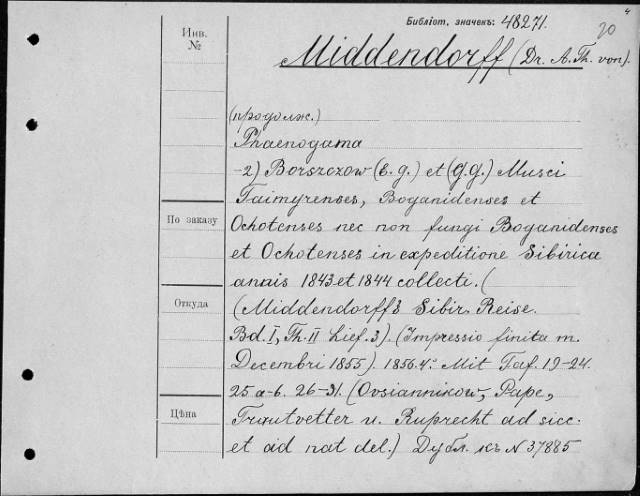 4
Библіот. значекъ: 48271.
20
Инв.
№
Middendorff (Dr. A. Th. von).
(продолж.)
Phaenogama
-2) Borszczow (E. g.) et (G. g.) Musci
Taimyrenses, Boganidenses et
По заказу
Ochotenses nec non fungi Boganidenses
et Ochotenses in expeditione Sibirica
anais 1843 et 1844 collecti. (
Откуда
(Middendorff's Sibir. Reise.
Bd. I, Th. II Lief. 3). (Impressio finita m.
Decembri 1855). 1856. 4°. Mit Taf. 19-24.
25 a-b. 26-31. (Ovsiannikow, Pape,
Цѣна
Trautvetter u. Ruprecht ad sicc.
et ad nat del.) Дубл. къ N 37885